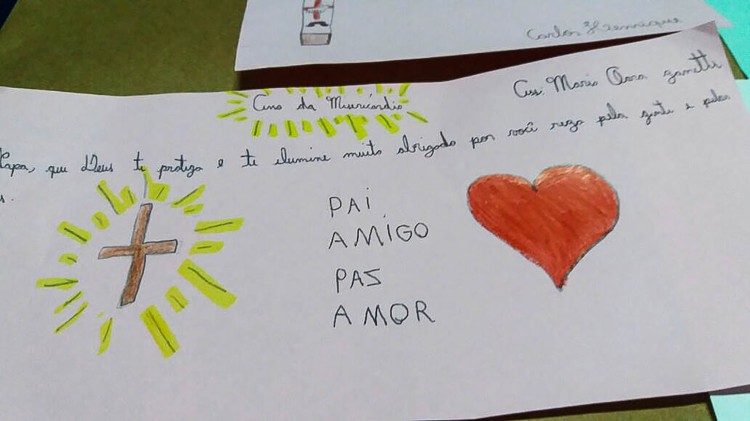 Carlos Henrique
Ano da Misericórdia
Ass: Maria Clara Zanetti
Papa, que Deus te proteja e te ilumine muito obrigado por você reza pela gente e pelas
s.
PAI
AMIGO
PAS
AMOR